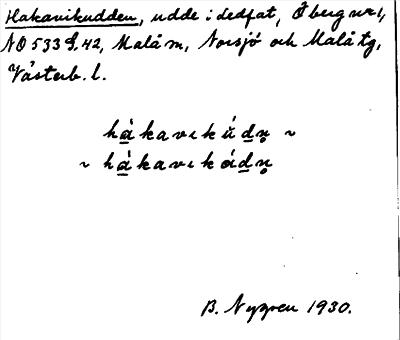 Hakavikudden, udde i sedfat, Åberg nr 1,
NO 533 42, Malå m, Norsjö och Malå tg,
Västerb. l.
hà̱kavıkúḏn̥ ~
~ hà̱kavıkáḏn̥
B. Nygren 1930.